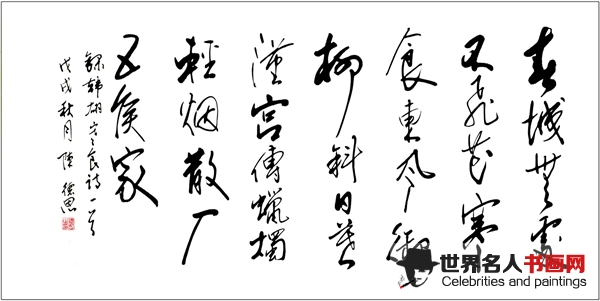 春城無處
不飛花寒
食東風御
柳斜日暮
漢宮傳蠟燭
輕烟散入
五侯家
録韩翃寒食诗一首
戊戌秋月 陸德思
世界名人书画网
Celebrities and paintings